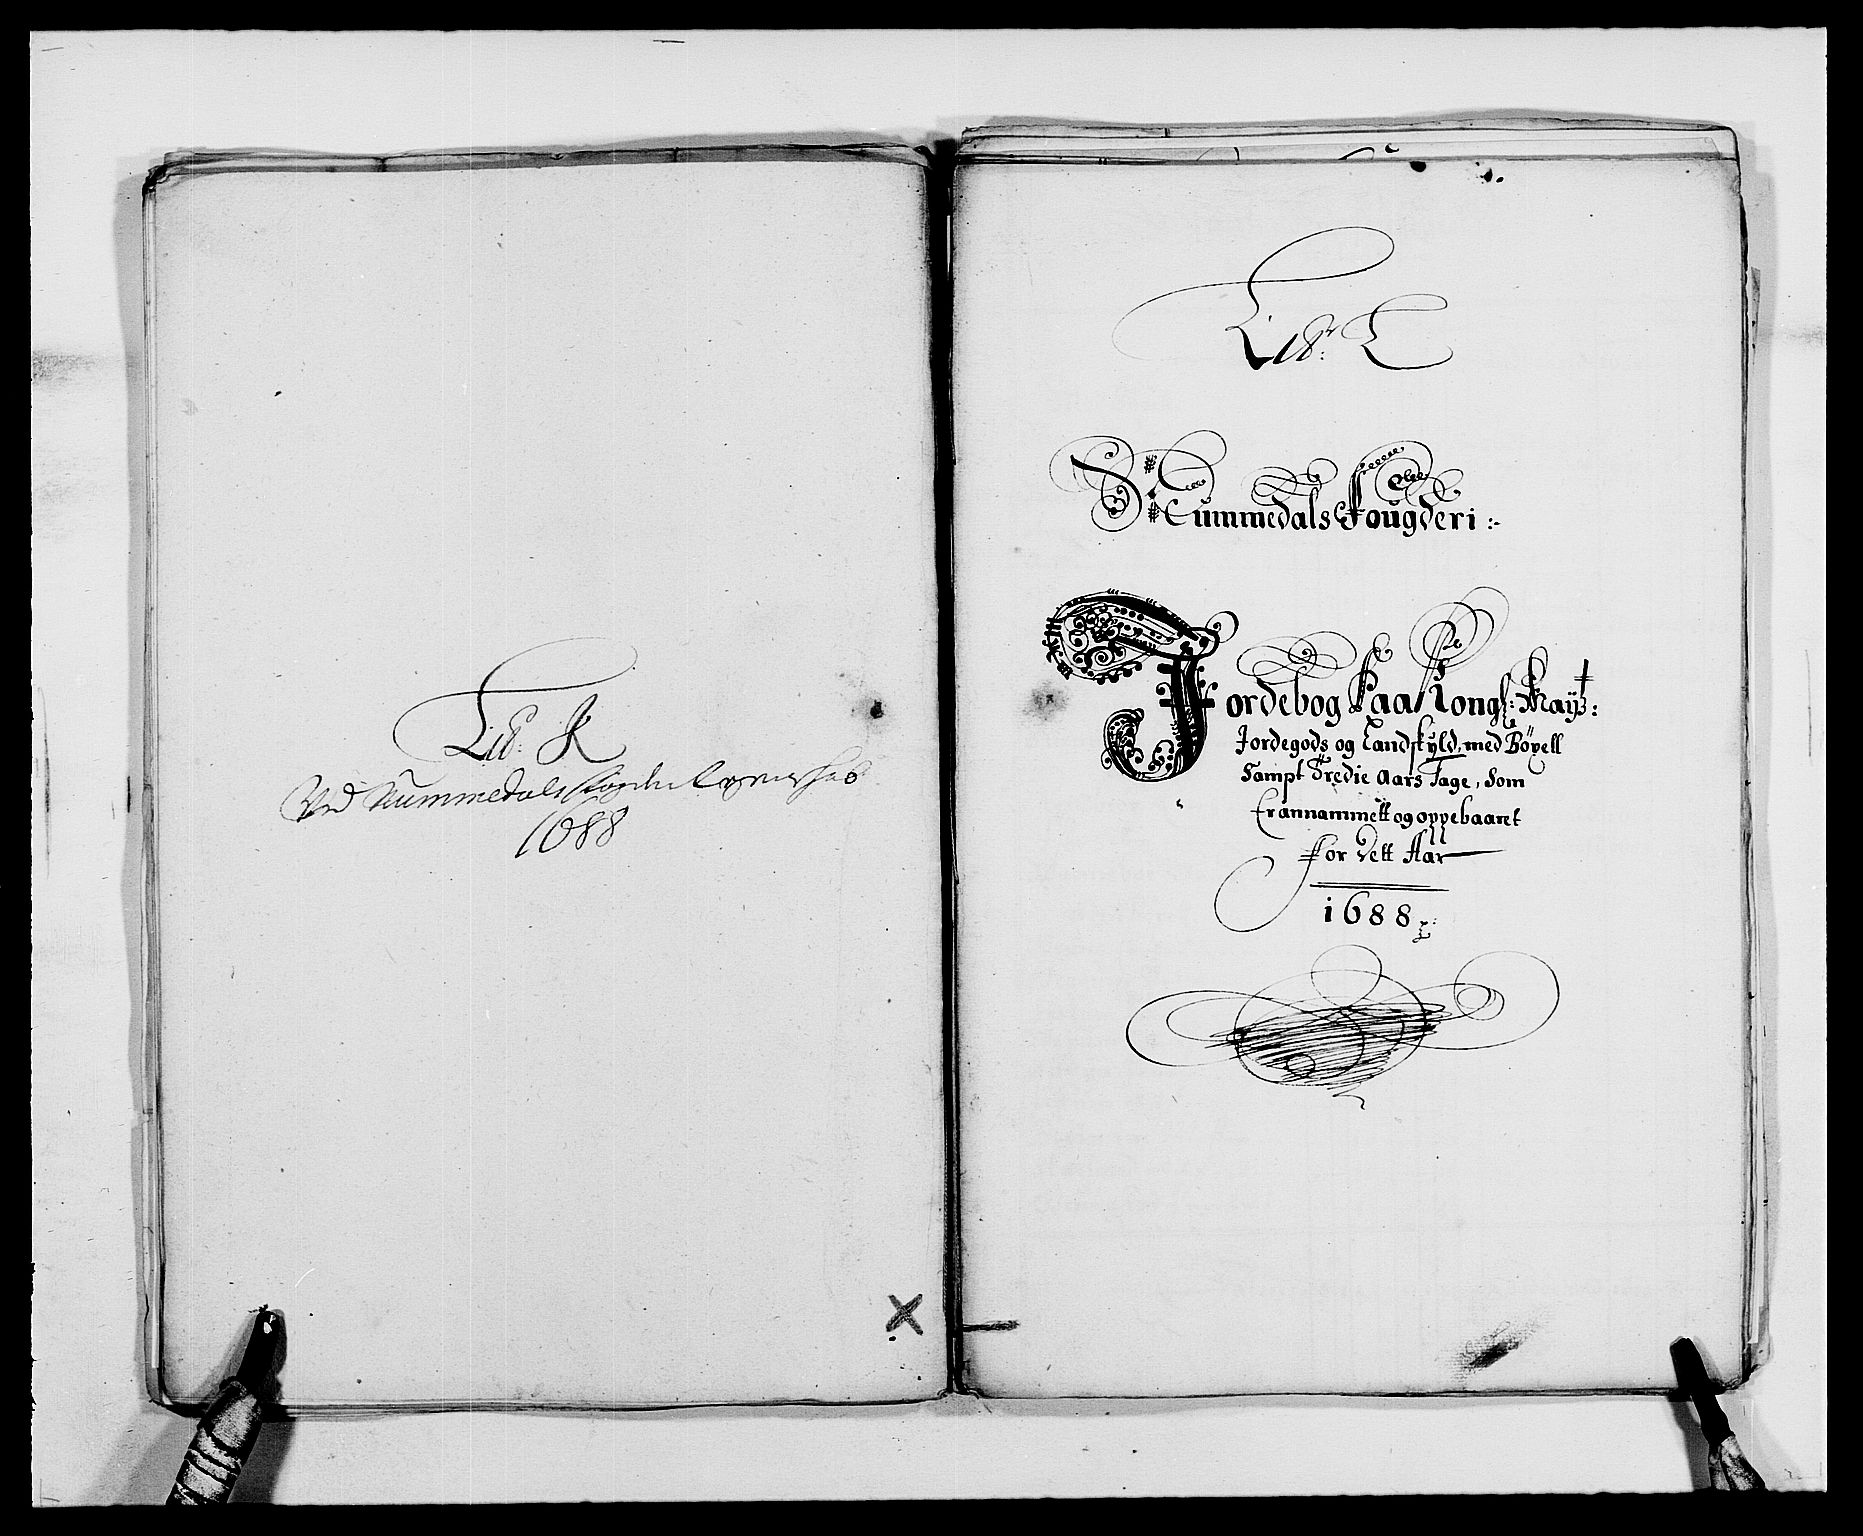 Litr: K
Ved Nummedals fogderi Regenschab
1688
Litr: L
Nummedals Fougderi :-
Jordebog Paa Kongl: May:tz:
Jordegods og Landskyld, med Böyell
Sampt Tredie Aars Tage, Som
Erannammett og oppebaaret
For dett Aar
1688